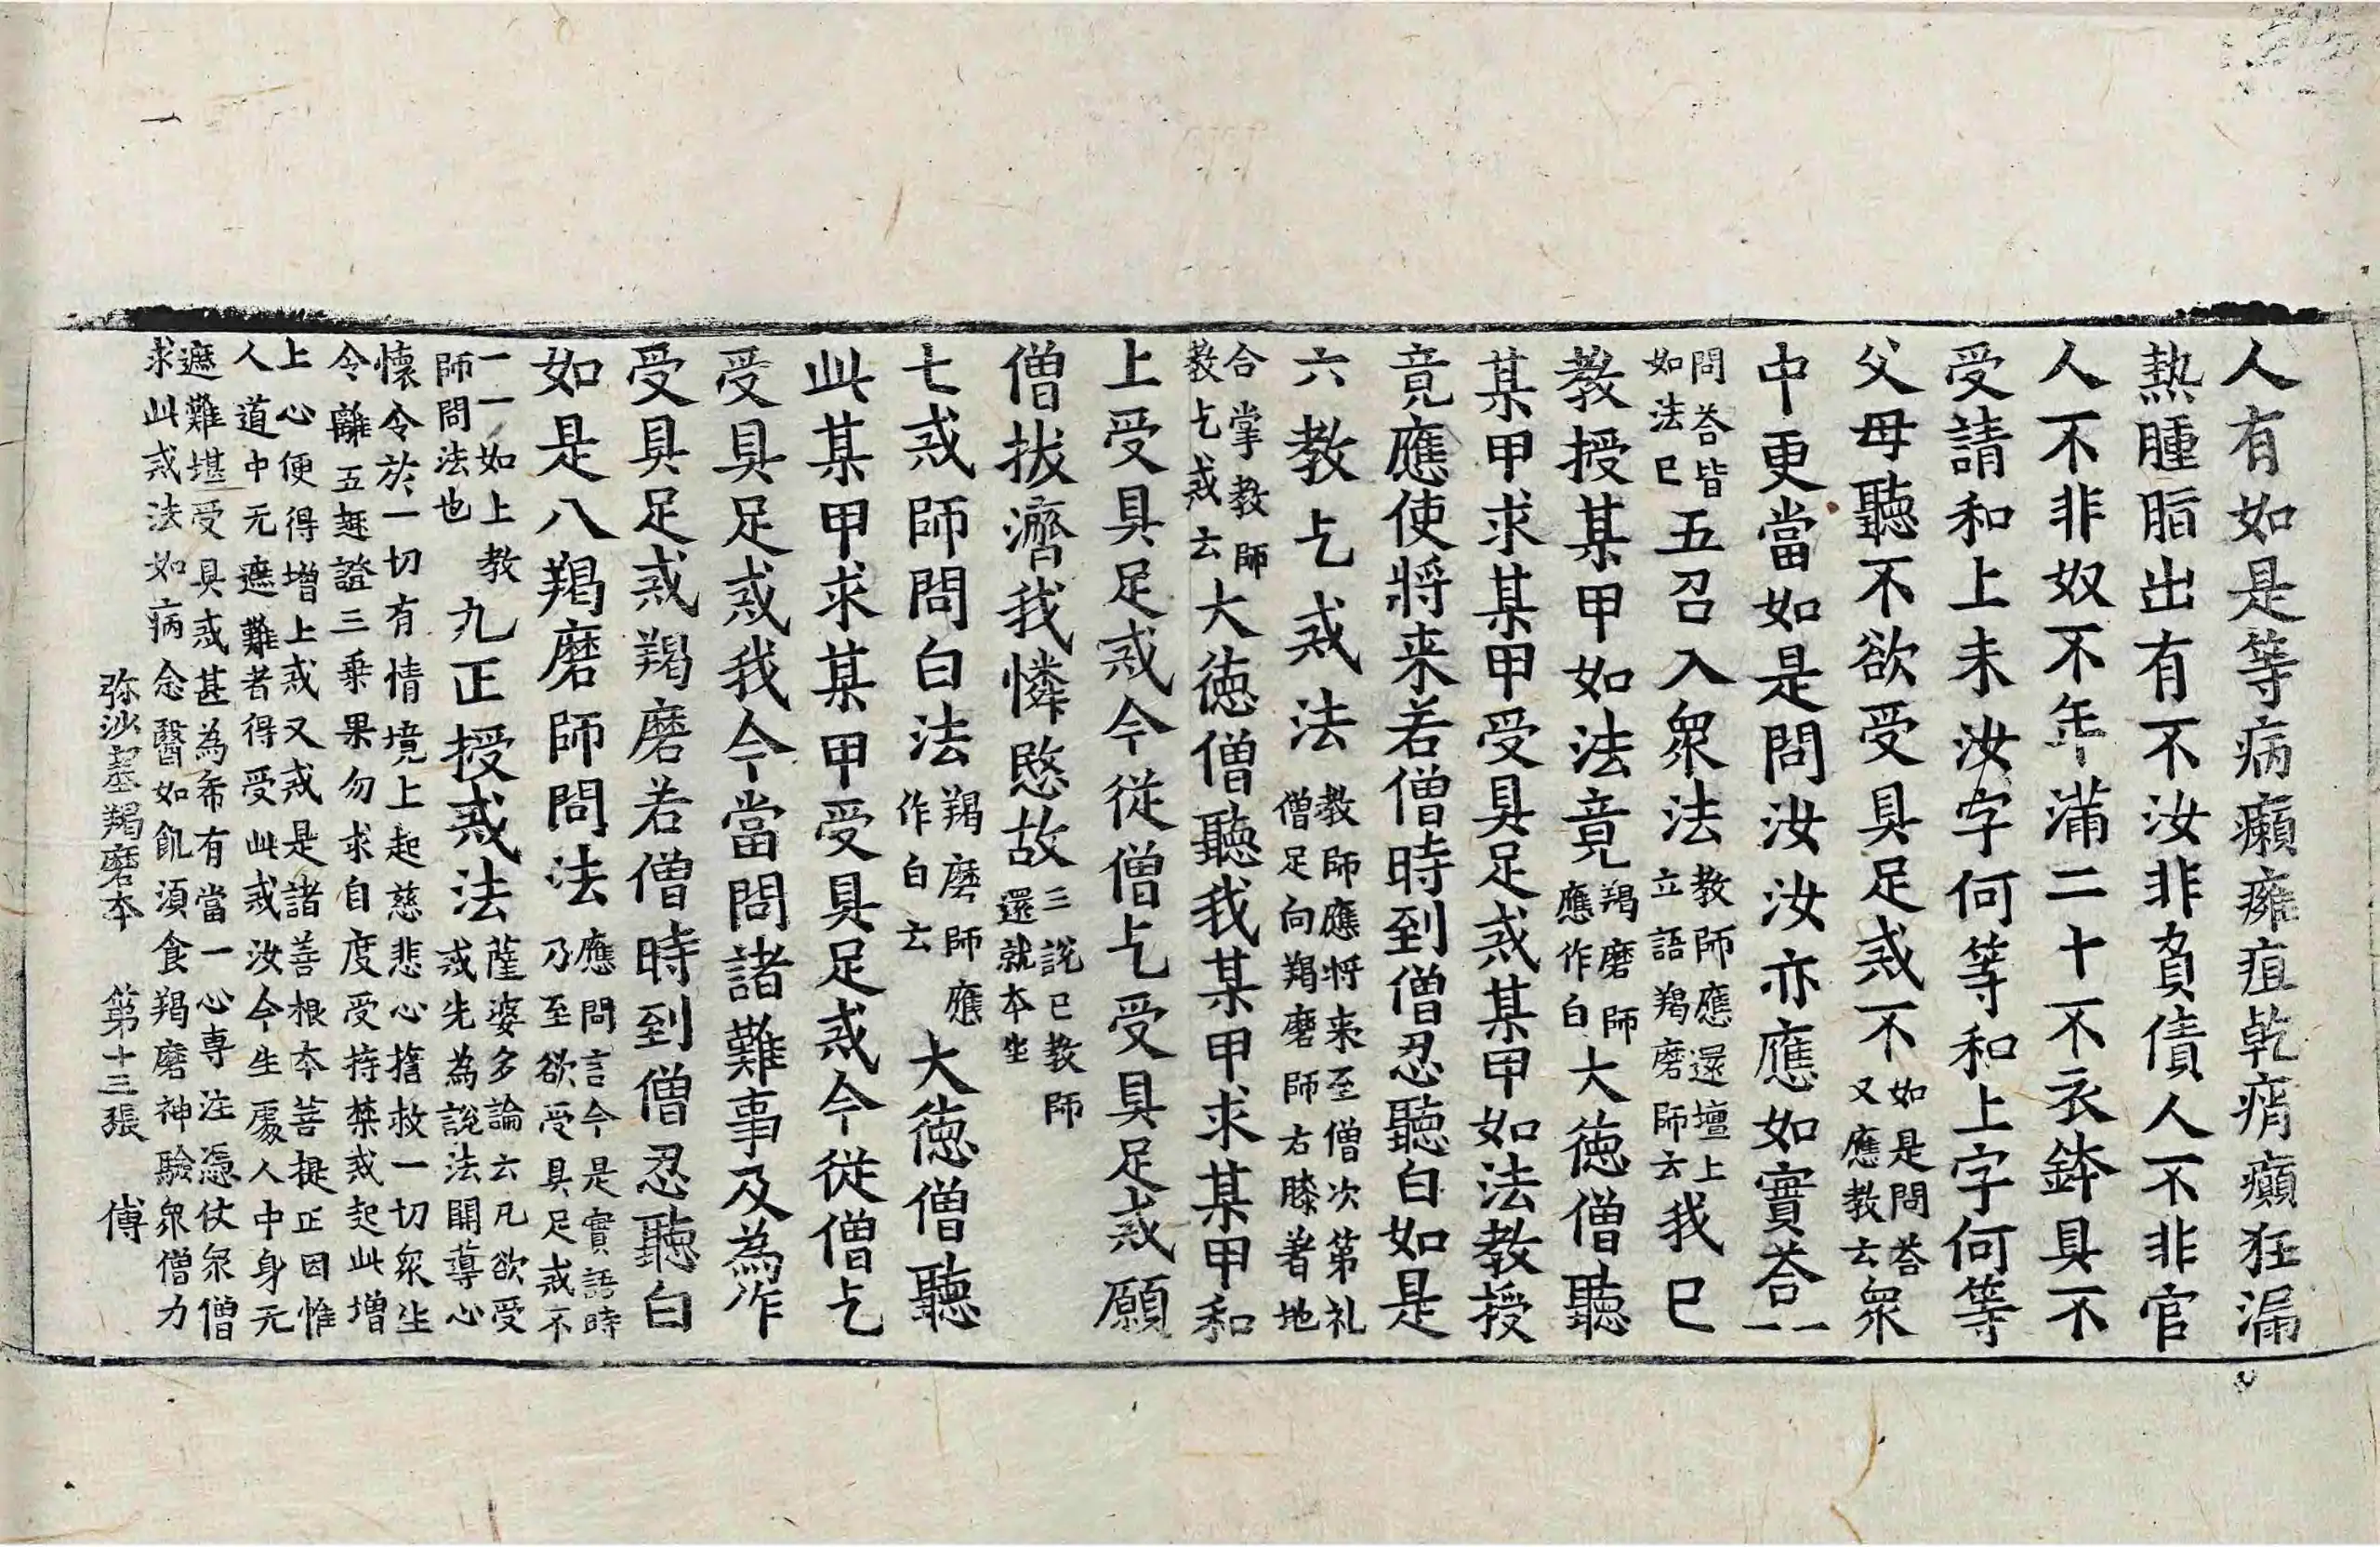 人有如是等病癩癰疽乾痟癲狂漏
熱腫脂出有不汝非負債人不非官
人不非奴不年滿二十不衣鉢具不
受請和上未汝字何等和上字何等
父母聽不欲受具足戒不如是問荅又應教云衆
中更當如是問汝汝亦應如實荅一一
問荅皆如法已五召入衆法教師應還壇上立語羯磨師云我已
教授某甲如法竟羯磨師應作白大德僧聽
某甲求某甲受具足戒某甲如法教授
竟應使將来若僧時到僧忍聽白如是
六教乞戒法教師應將来至僧次第礼僧足向羯磨師右膝著地
合掌教師教乞戒云大德僧聽我某甲求某甲和
上受具足戒今從僧乞受具足戒願
僧拔濟我憐愍故三說已教師還就本坐
七戒師問白法羯磨師應作白云大德僧聽
此某甲求某甲受具足戒今從僧乞
受具足戒我今當問諸難事及為作
受具足戒羯磨若僧時到僧忍聽白
如是八羯磨師問法應問言今是實語時乃至欲受具足戒不
一一如上教師問法也九正授戒法薩婆多論云凡欲受戒先為說法開導心
懷令於一切有情境上起慈悲心擔救一切衆生
令離五趣證三乗果勿求自度受持禁戒起此增
上心便得增上戒又戒是諸善根本菩提正因惟
人道中无遮難者得受此戒汝今生處人中身无
遮難堪受具戒甚為希有當一心専注憑仗衆僧
求此戒法如病念醫如飢須食羯磨神驗衆僧力
弥沙塞羯磨本 第十三張 傅